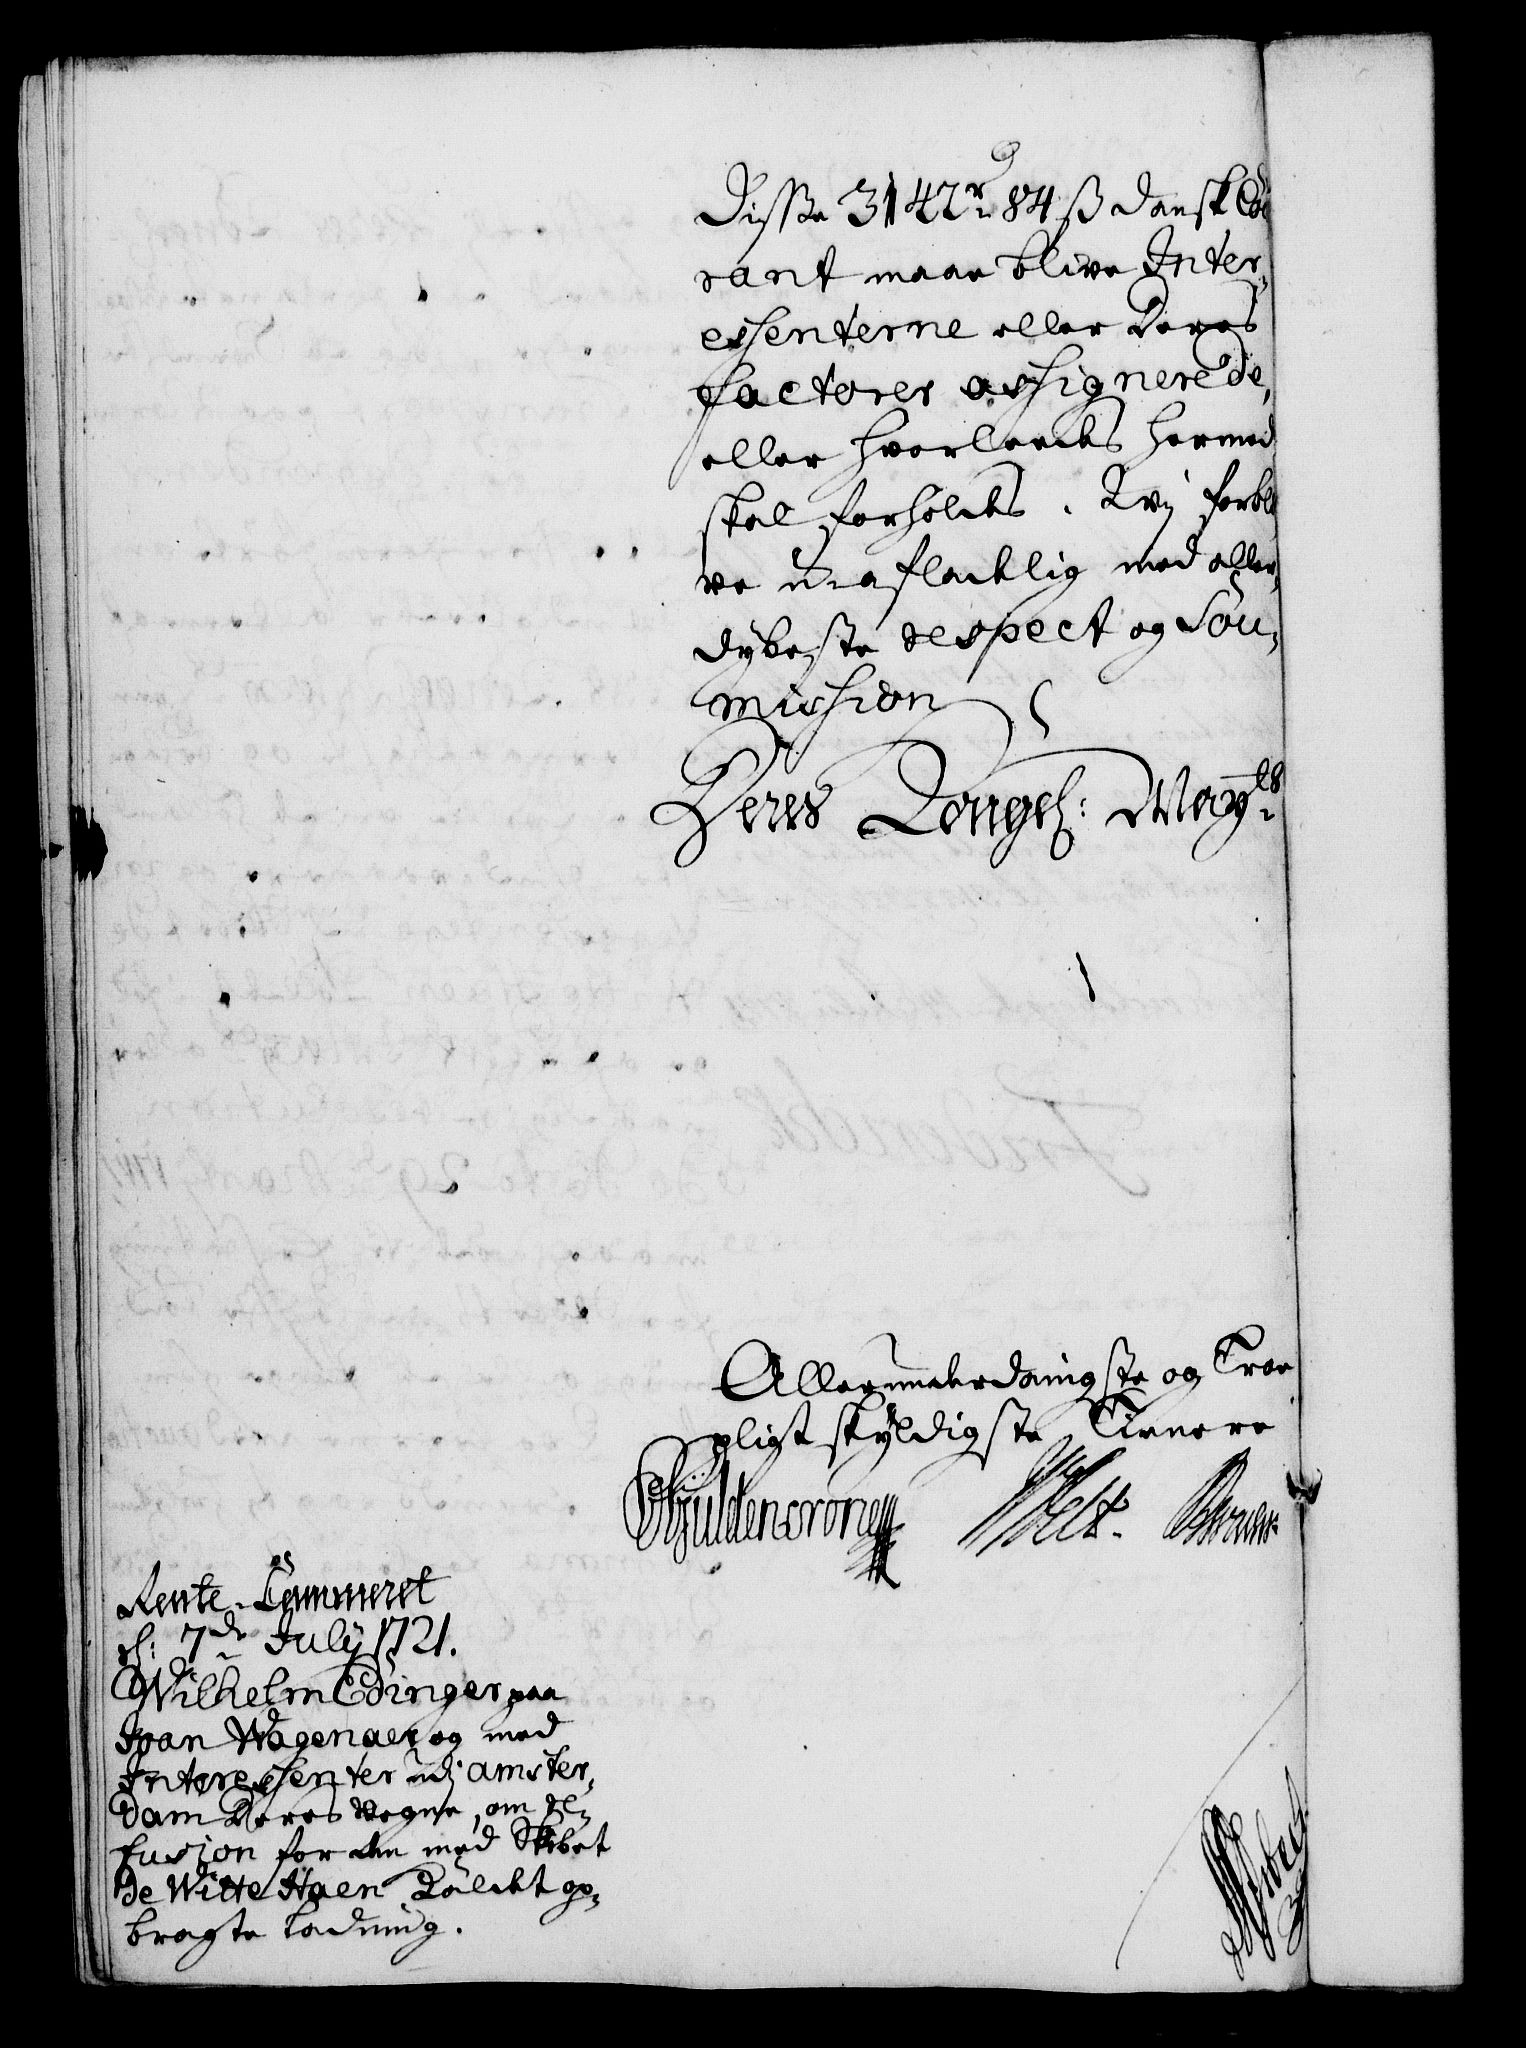 Disse 3142 r 84 ß dansk Cou
rant maae blive Inter,
essenterne eller Deres
factorer assignerede,
eller hvorledes hermed
skal forholdes. Wij forbli
ve u-afladelig med aller,
dybeste respect og Sou,
mission
Deres Kongel: Mayts
Allerunderdanigste og Troe
pligt skyldigste Tienere
Gyldencrone
Rente-Cammeret
d: 7de July 1721.
Wilhelm Edinger paa
Joan Wagenaer og med
Interessenter udj Amster,
dam Deres Vegne, om re,
fusion for den med Skibet
de Witte Haen Kaldet op,
bragte Ladning.